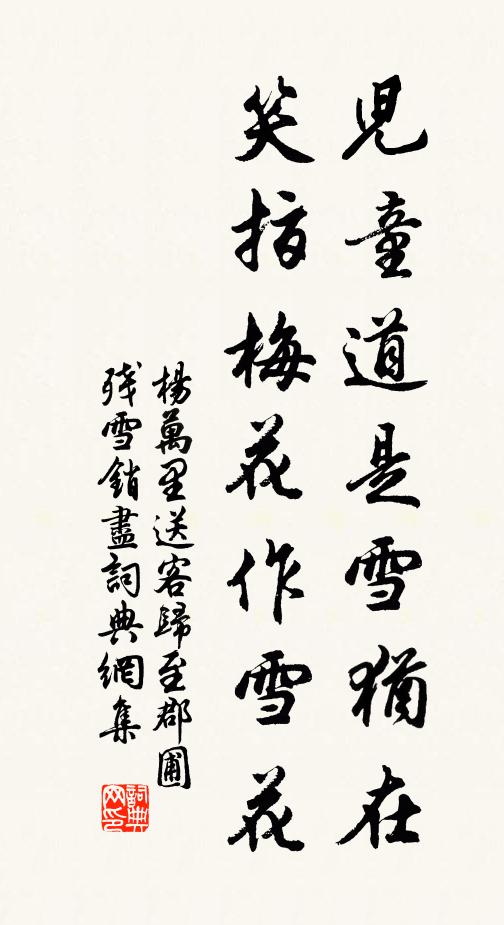 児童道是雪猶在
笑指梅花作雪花
楊萬里送客歸至郡圃
殘雪銷盡詞典網集
詞典
网印